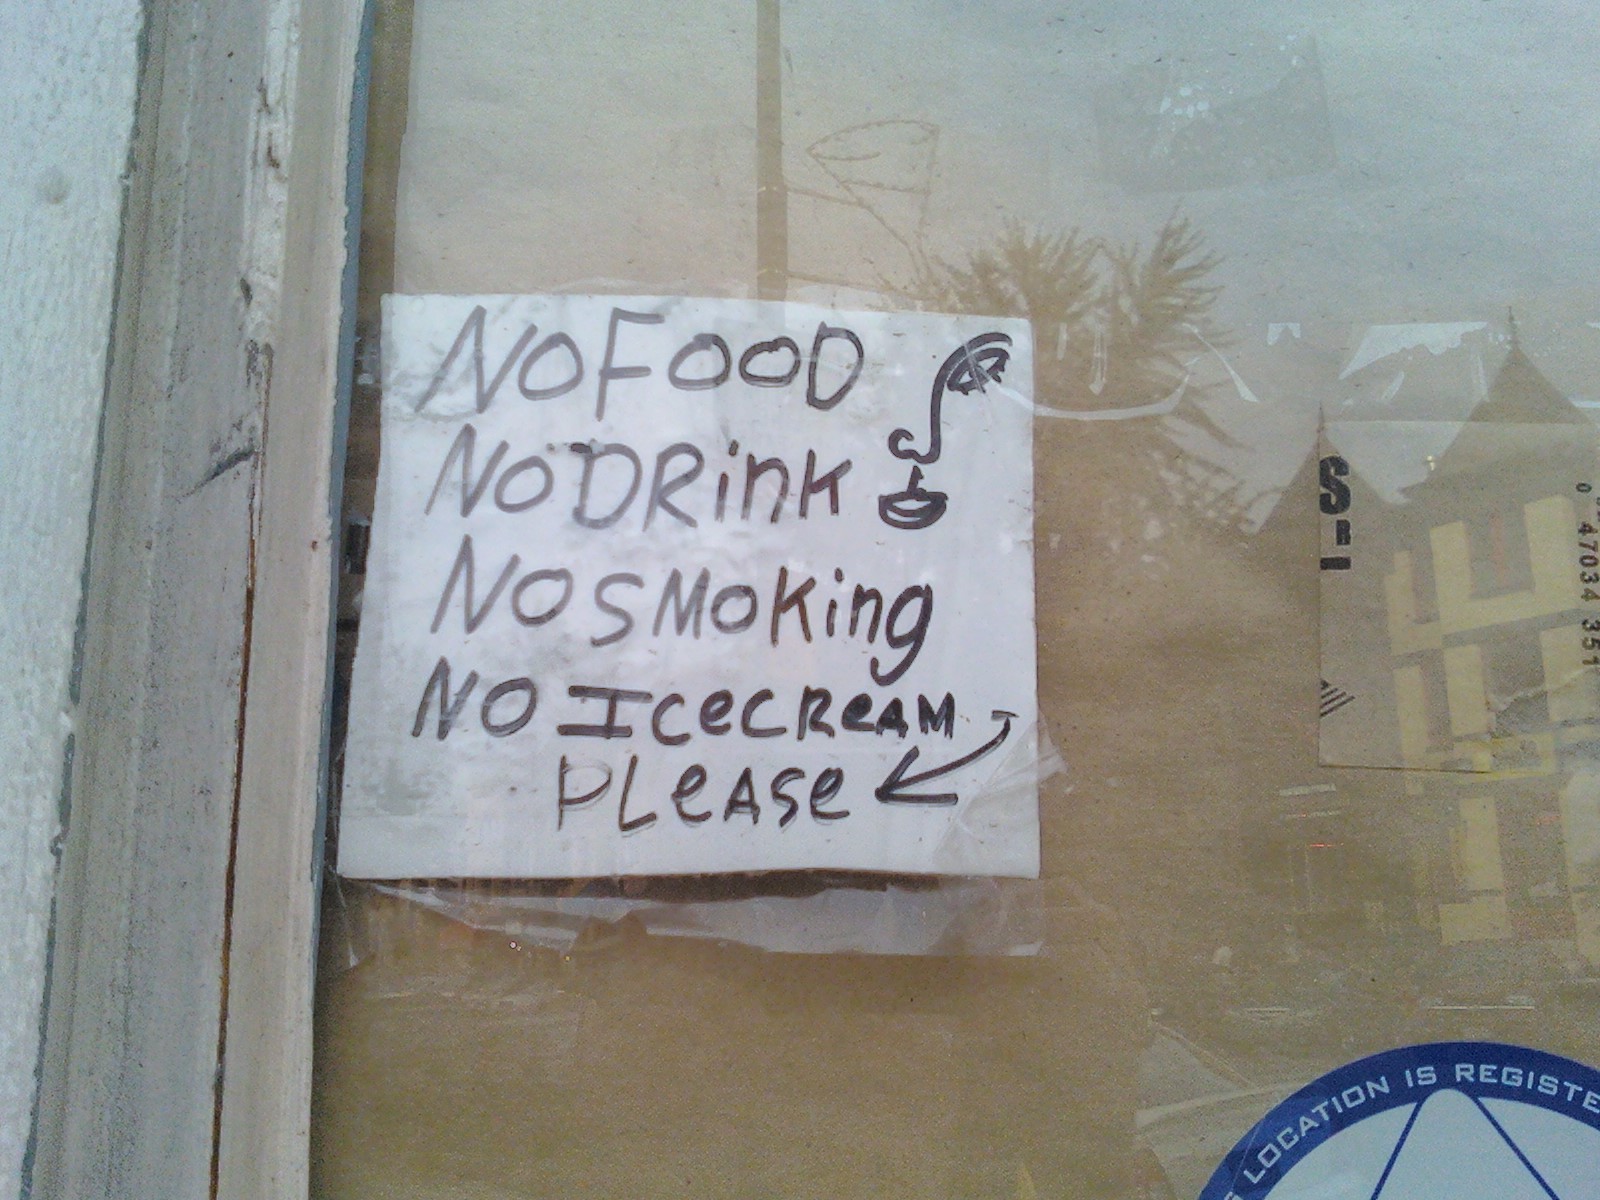 NO FOOD
NO DRink
NO SMOKing
NO ICeCReAM
PLeASe
S.
0 47034 351
LOCATION IS REGISTE